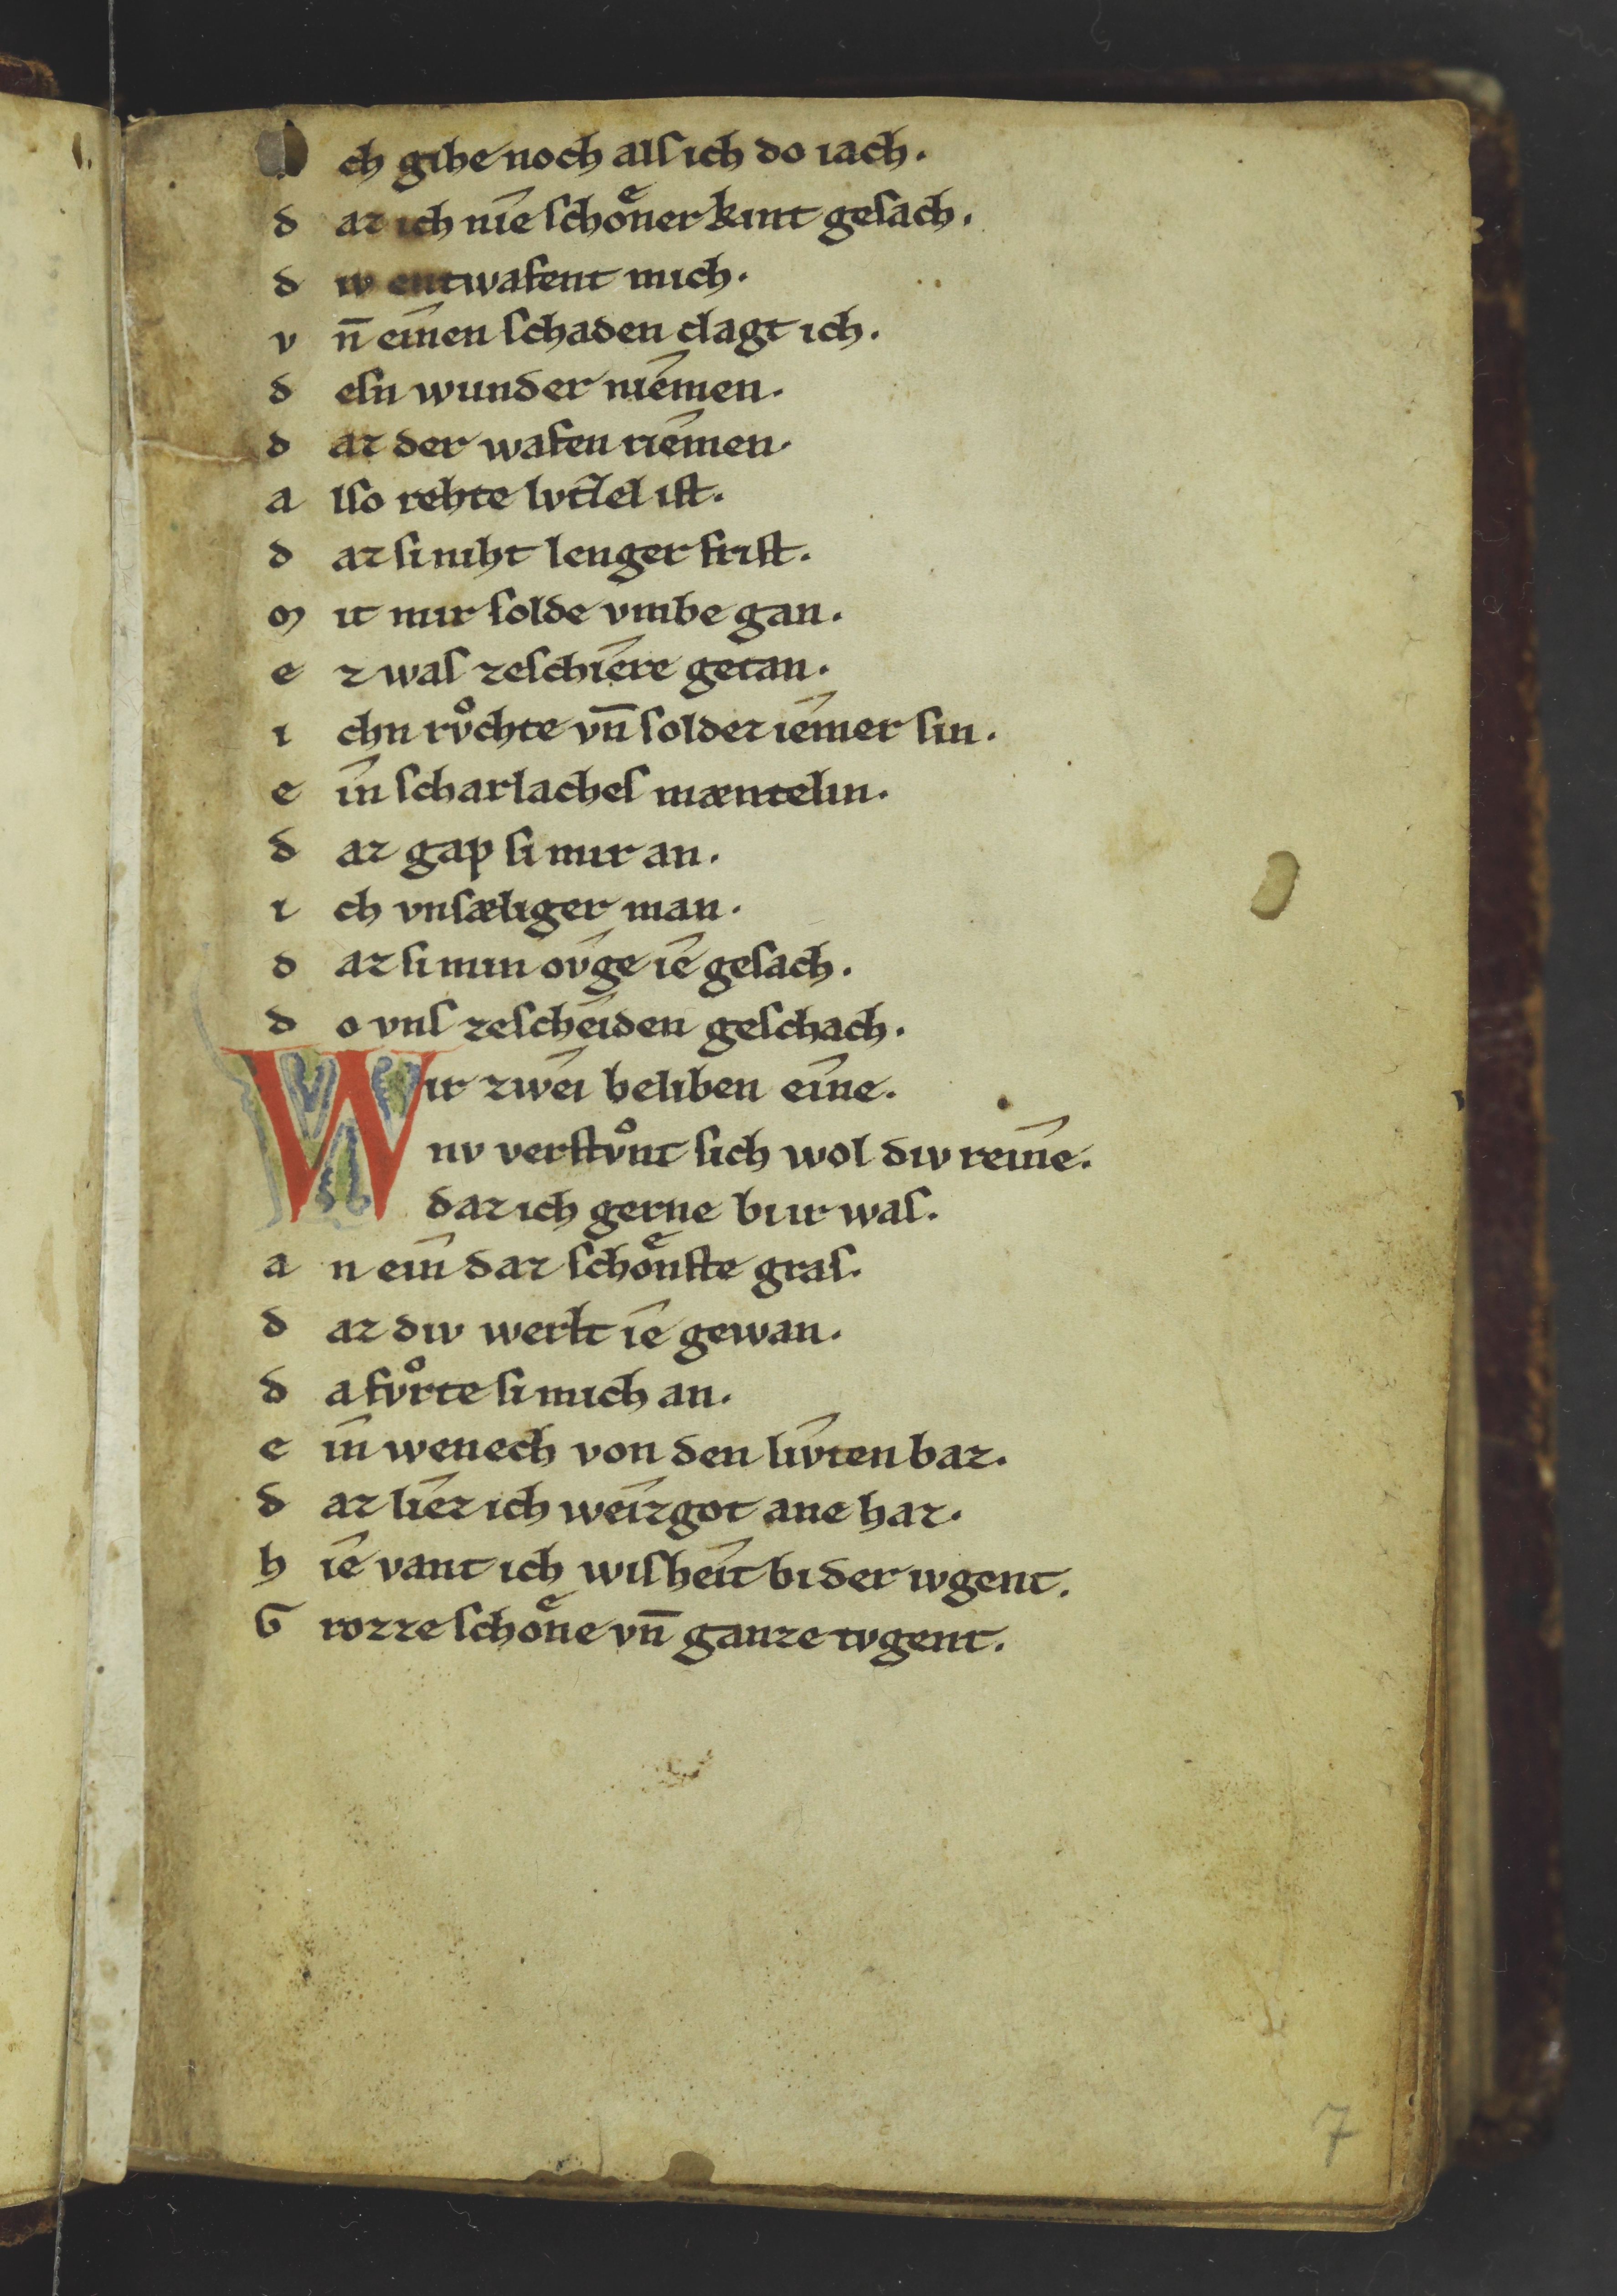 ch gihe noch alſ ich do iach.
d az ich nîe ſchoͤner kint geſach.
d iv entwafent mich.
v n̄ eînen ſchaden clagt ich.
d eſn wunder nîemen.
d az der wafen rîemen.
a lſo rehte lvtˢel iſt.
d az ſi niht lenger friſt.
m it mir ſolde vmbe gan.
e z waſ zeſchîere getan.
i chn rvͦchte vn̄ ſoldez îemer ſin.
e în ſcharlacheſ mæntelin.
d az gap ſi mir an.
i ch vnſæliger man.
d az ſi min ov̂ge îe geſach.
d o vnſ zeſcheîden geſchach.
Wir zweî beliben eîne.
nv verſtvͦnt ſich wol div reîne.
daz ich gerne bi ir waſ.
a n eîn daz ſchoͤnſte graſ.
d az div werlt îe gewan.
d a fvͦrte ſi mich an.
e în wenech von den lîvten baz.
d az lîez ich weîzgot ane haz.
h îe vant ich wiſheît bi der ivgent.
G rozze ſchoͤne vn̄ ganze tvgent.
7